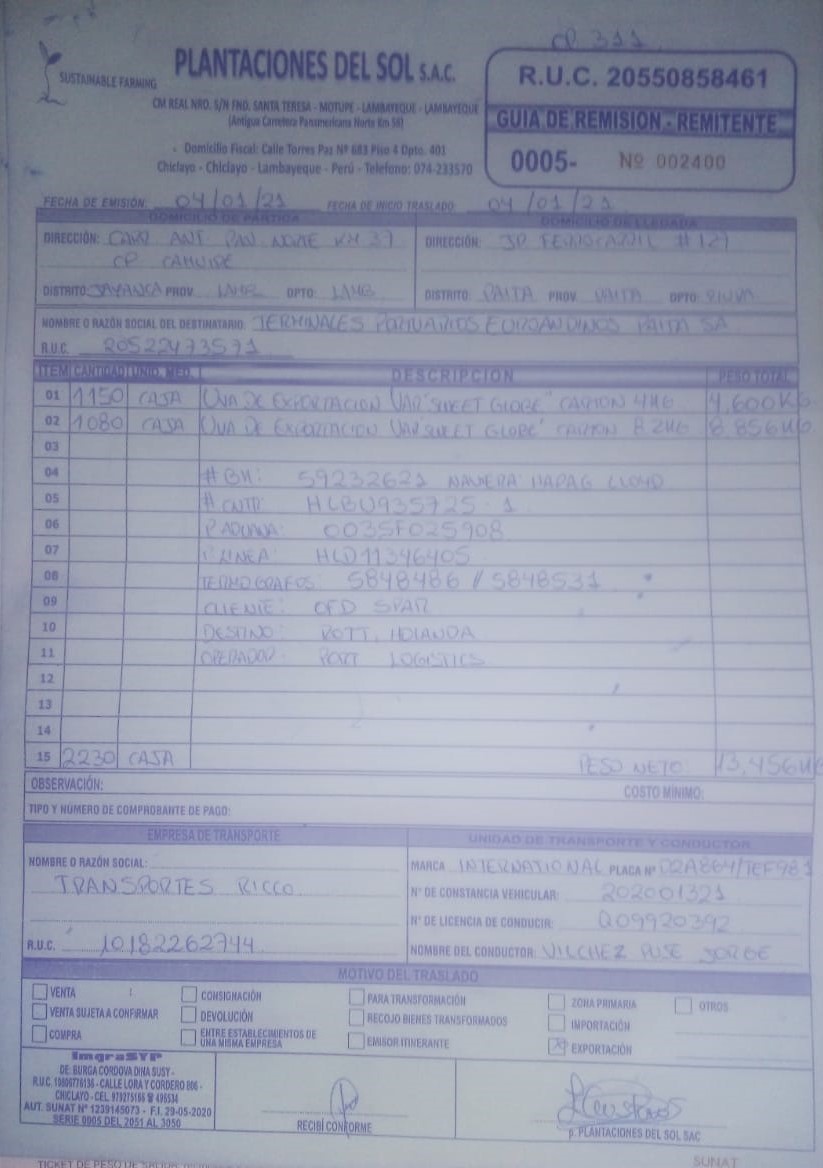 CP. 311
SUSTAINABLE FARMING
PLANTACIONES DEL SOL S.A.C.
CM REAL NRO. S/N FND. SANTA TERESA - MOTUPE - LAMBAYEQUE - LAMBAYEQUE
(Antigua Carretera Panamericana Norte Km 56)
Domicilio Fiscal: Calle Torres Paz Nº 683 Piso 4 Dpto. 401
Chiclayo - Chiclayo - Lambayeque - Perú - Telefono: 074-233570
R.U.C. 20550858461
GUIA DE REMISION - REMITENTE
0005- Nº 002400
FECHA DE EMISIÓN: 04/01/21 FECHA DE INICIO TRASLADO: 04/01/21
DOMICILIO DE PARTIDA DOMICILIO DE LLEGADA
DIRECCIÓN: CARR ANT. PAN. NORTE KM 37
CP CAHUIDE
DISTRITO: JAYANCA PROV. LAMB DPTO: LAMB
DIRECCIÓN: JR FERROCARRIL #127
DISTRITO: PAITA PROV. PAITA DPTO: PIURA
NOMBRE O RAZÓN SOCIAL DEL DESTINATARIO: TERMINALES PORTUARIOS EUROANDINOS PAITA SA
R.U.C. 20522473571
ITEM CANTIDAD UNID. MED. DESCRIPCION PESO TOTAL
01 1150 CAJA UVA DE EXPORTACION VAR "SWEET GLOBE" CARTON 4KG 4,600KG
02 1080 CAJA UVA DE EXPORTACION VAR "SWEET GLOBE" CARTON 8.2KG 8.856KG
03
04 # BK: 59232621 NAVIERA HAPAG LLOYD
05 # CNTR: HLBU935725-1
06 P. ADUANA: 0035F025908
07 P. LINEA: HLD11346405
08 TERMOGRAFOS: 5848486 / 5848531
09 CLIENTE: OFD SPAR
10 DESTINO: ROTT, HOLANDA
11 OPERADOR: PORT LOGISTICS
12
13
14
15 2230 CAJA PESO NETO: 13,456KG
OBSERVACIÓN: COSTO MÍNIMO:
TIPO Y NÚMERO DE COMPROBANTE DE PAGO:
EMPRESA DE TRANSPORTE
NOMBRE O RAZÓN SOCIAL:
TRANSPORTES RICCO
R.U.C. 10182262744
UNIDAD DE TRANSPORTE Y CONDUCTOR
MARCA INTERNATIONAL PLACA Nº D2A864/TEF981
Nº DE CONSTANCIA VEHICULAR: 202001321
Nº DE LICENCIA DE CONDUCIR: Q09920392
NOMBRE DEL CONDUCTOR: VILCHEZ PUSE JORGE
MOTIVO DEL TRASLADO
VENTA
VENTA SUJETA A CONFIRMAR
COMPRA
CONSIGNACIÓN
DEVOLUCIÓN
ENTRE ESTABLECIMIENTOS DE
UNA MISMA EMPRESA
PARA TRANSFORMACIÓN
RECOJO BIENES TRANSFORMADOS
EMISOR ITINERANTE
ZONA PRIMARIA
IMPORTACIÓN
EXPORTACIÓN
OTROS
ImgraSYP
DE: BURGA CORDOVA DINA SUSY -
R.U.C. 10806776136 - CALLE LORA Y CORDERO 806 -
CHICLAYO - CEL. 979275166 ☎ 496534
AUT. SUNAT Nº 1239145073 - F.I. 29-05-2020
SERIE 0005 DEL 2051 AL 3050
RECIBÍ CONFORME
p. PLANTACIONES DEL SOL SAC
SUNAT
TICKET DE PESO DE